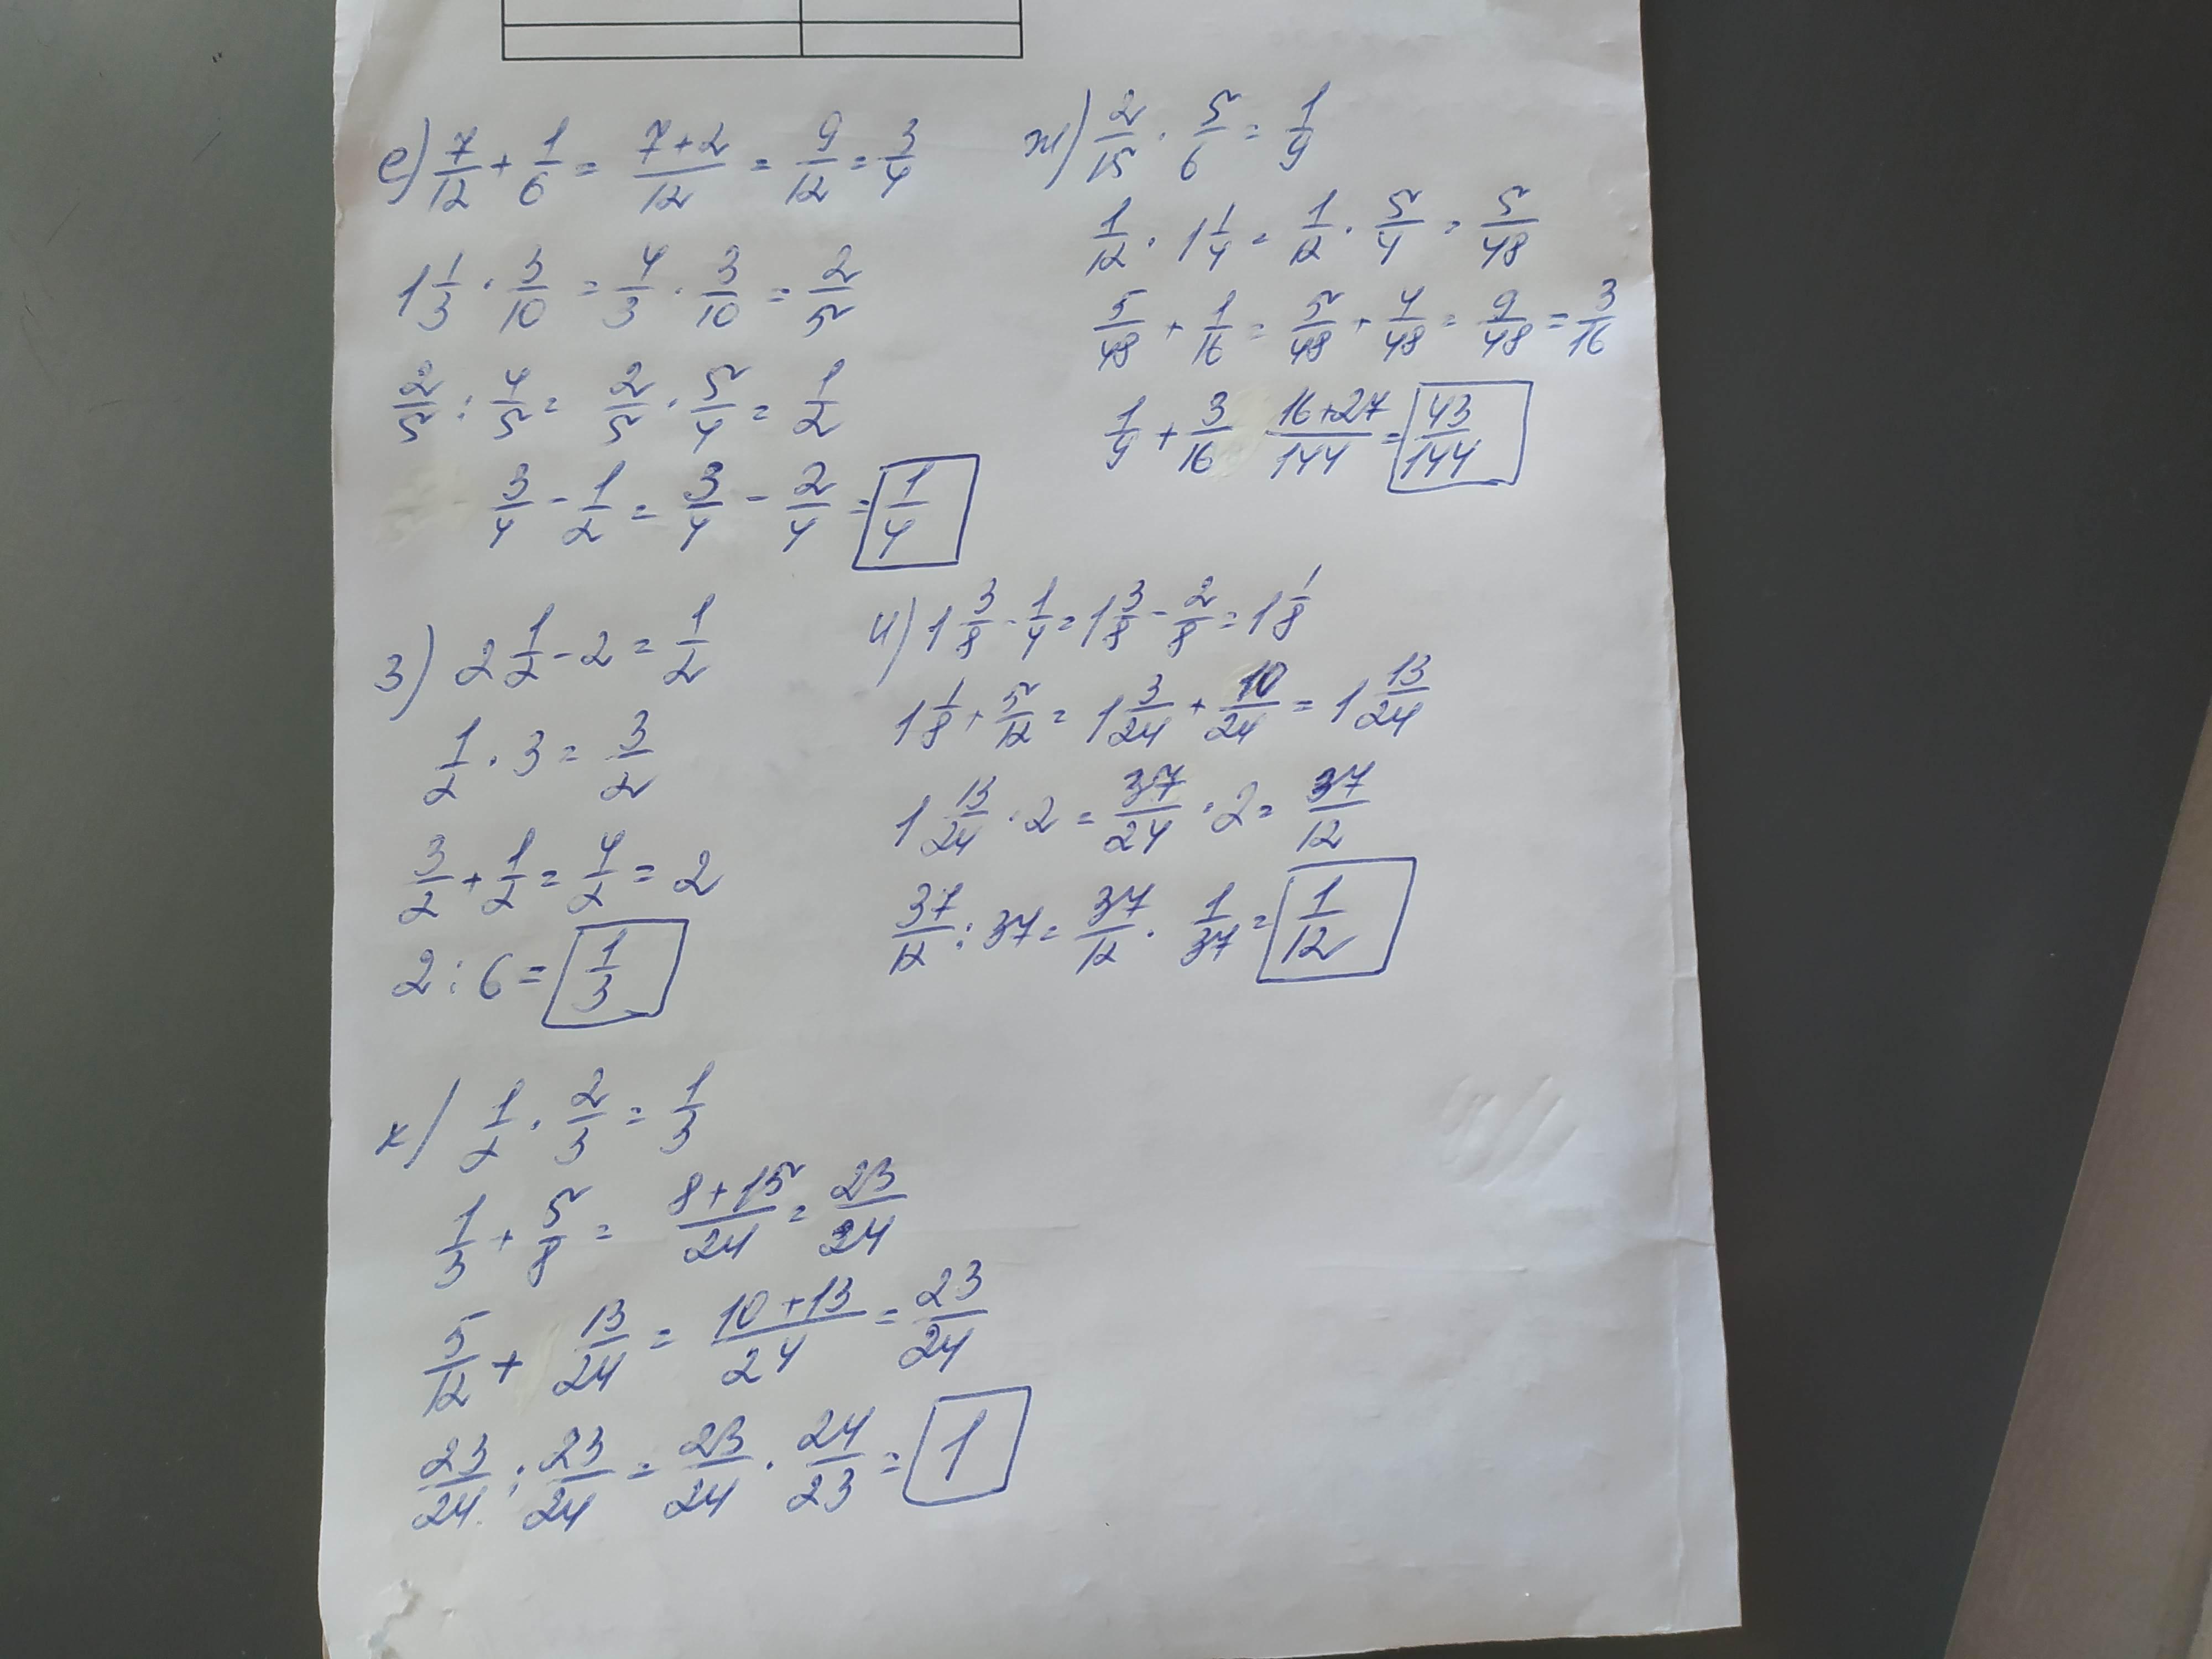 е) 7/12 + 1/6 = 7+2/12 = 9/12 = 3/4
1 1/3 · 3/10 = 4/3 · 3/10 = 2/5
2/5 : 4/5 = 2/5 · 5/4 = 1/2
3/4 - 1/2 = 3/4 - 2/4 = 1/4
ж) 2/15 · 5/6 = 1/9
1/12 · 1 1/4 = 1/12 · 5/4 = 5/48
5/48 + 1/16 = 5/48 + 4/48 = 9/48 = 3/16
1/9 + 3/16 16+27/144 = 43/144
з) 2 1/2 - 2 = 1/2
1/2 · 3 = 3/2
3/2 + 1/2 = 4/2 = 2
2 : 6 = 1/3
и) 1 3/8 - 1/4 = 1 3/8 - 2/8 = 1 1/8
1 1/8 + 5/12 = 1 3/24 + 10/24 = 1 13/24
1 13/24 · 2 = 37/24 · 2 = 37/12
37/12 : 37 = 37/12 · 1/37 = 1/12
к) 1/2 · 2/3 = 1/3
1/3 + 5/8 = 8+15/24 = 23/24
5/12 + 13/24 = 10+13/24 = 23/24
23/24 : 23/24 = 23/24 · 24/23 = 1